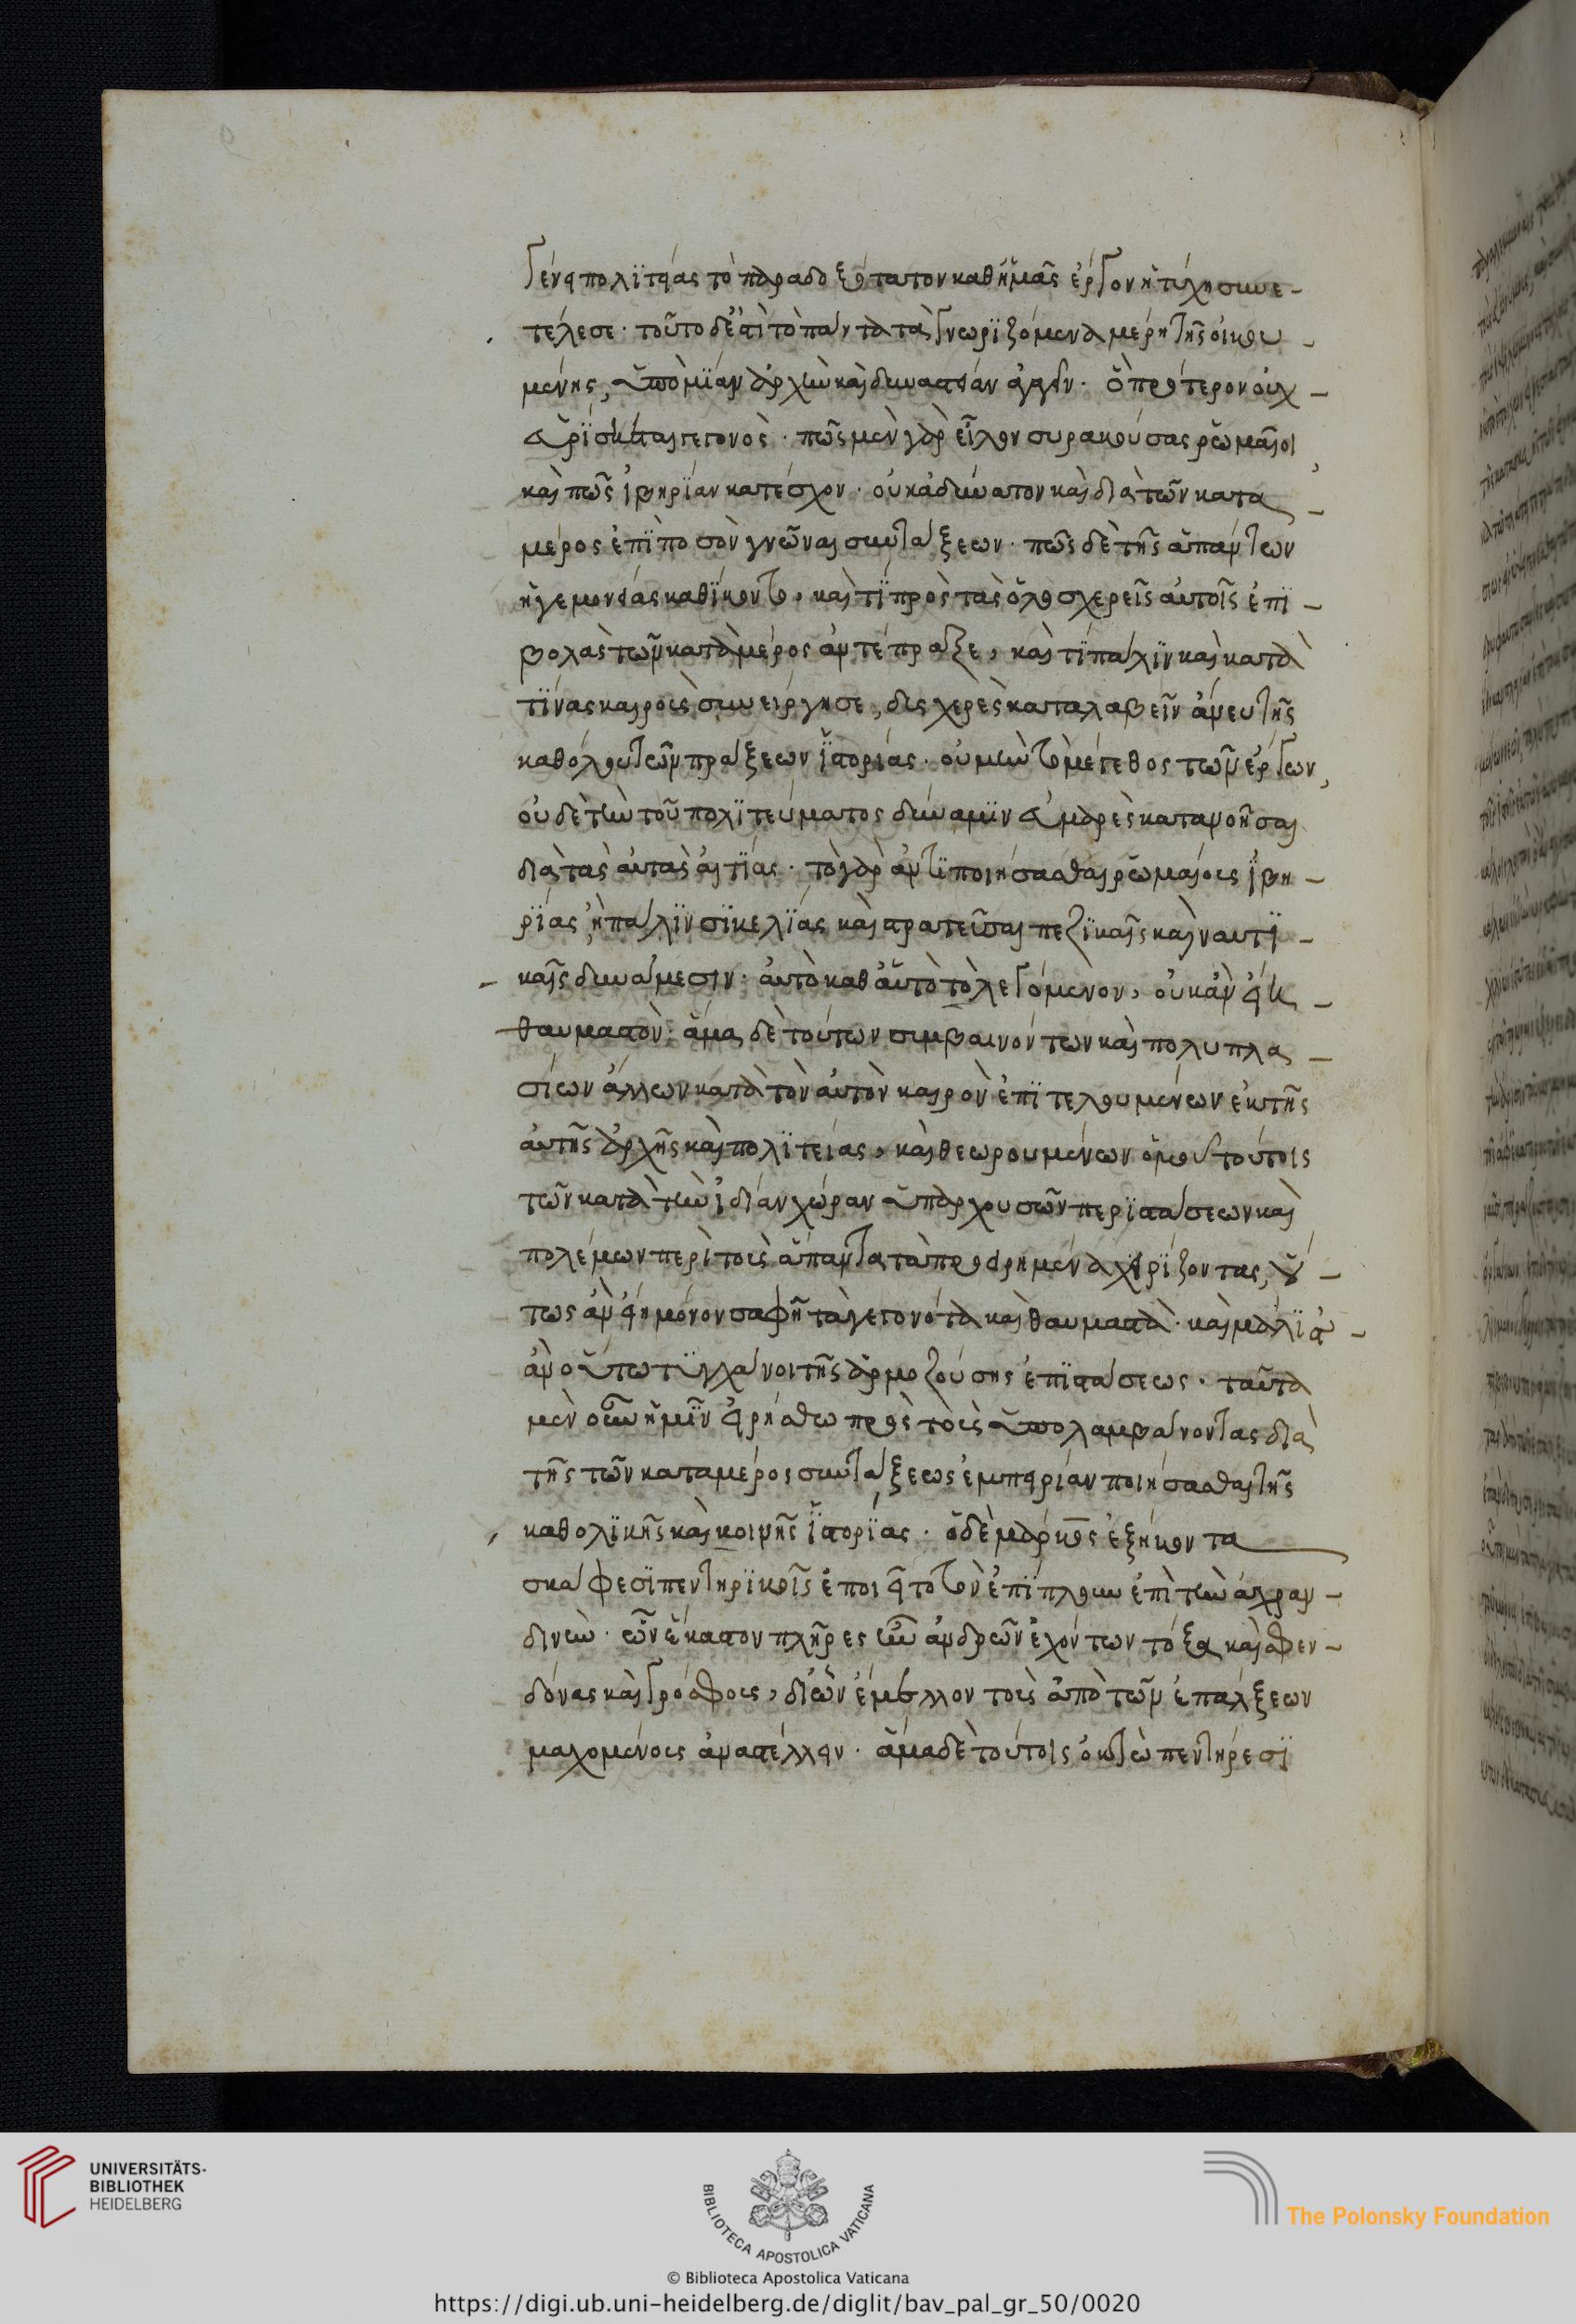 γένει πολιτείας τὸ παραδοξότατον καθ' ἡμᾶς ἔργον ἡ τύχη συνε-
τέλεσε· τοῦτο δ' ἔστι τὸ πάντα τὰ γνωριζόμενα μέρη τῆς οἰκου-
μένης, ὑπὸ μίαν ἀρχὴν καὶ δυναστείαν ἀγαγεῖν· ὃ πρότερον οὐχ-
εὑρίσκεται γεγονός· πῶς μὲν γὰρ εἷλον συρακούσας ῥωμαῖοι
καὶ πῶς ἰβηρίαν κατέσχον· οὐκ ἀδύνατον καὶ διὰ τῶν κατα-
μέρος ἐπὶ ποσὸν γνῶναι συντάξεων· πῶς δὲ τῆς ἁπάντων
ἡγεμονίας καθίκοντο, καὶ τί πρὸς τὰς ὁλοσχερεῖς αὐτοῖς ἐπι-
βολὰς τῶν κατὰ μέρος ἀντέπραξε, καὶ τί πάλιν καὶ κατὰ
τίνας καιροὺς συνείργησε, δισχερὲς καταλαβεῖν ἄνευ τῆς
καθόλου τῶν πράξεων ἱστορίας· οὐ μὴν τὸ μέγεθος τῶν ἔργων,
οὐδὲ τὴν τοῦ πολιτεύματος δύναμιν εὐμαρὲς κατανοῆσαι
διὰ τὰς αὐτὰς αἰτίας· τὸ γὰρ ἀντιποιήσασθαι ῥωμαίους ἰβη-
ρίας, ἢ πάλιν σικελίας καὶ στρατεῦσαι πεζικαῖς καὶ ναυτι-
καῖς δυνάμεσιν· αὐτὸ καθ' αὑτὸ τὸ λεγόμενον, οὐκ ἂν εἴη-
θαυμαστόν· ἅμα δὲ τούτων συμβαινόντων καὶ πολυπλα-
σίων ἄλλων κατὰ τὸν αὐτὸν καιρὸν ἐπιτελουμένων ἐκ τῆς
αὐτῆς ἀρχῆς καὶ πολιτείας, καὶ θεωρουμένων ὁμοῦ τούτοις
τῶν κατὰ τὴν ἰδίαν χώραν ὑπαρχουσῶν περιστάσεων καὶ
πολέμων περὶ τοὺς ἅπαντα τὰ προειρημένα χειρίζοντας, οὕ-
τως ἂν εἴη μόνον σαφῆ τὰ γεγονότα καὶ θαυμαστὰ· καὶ μάλιστ'-
ἂν οὕτω τυγχάνοι τῆς ἁρμοζούσης ἐπιστάσεως· ταῦτα
μὲν οὖν ἡμῖν εἰρήσθω πρὸς τοὺς ὑπολαμβάνοντας διὰ
τῆς τῶν καταμέρος συντάξεως ἐμπειρίαν ποιήσασθαι τῆς
καθολικῆς καὶ κοινῆς ἱστορίας· ὁ δὲ μάρκος ἑξήκοντα
σκάφεσι πεντηρικοῖς ἐποιεῖτο τὸν ἐπίπλουν ἐπὶ τὴν ἀχραν-
δινὴν· ὧν ἕκαστον πλῆρες ἦν ἀνδρῶν ἐχόντων τόξα καὶ σφεν-
δόνας καὶ γρόσφους, δι' ὧν ἔμελλον τοὺς ἀπὸ τῶν ἐπάλξεων
μαχομένους ἀναστέλλειν· ἅμα δὲ τούτοις ὀκτὼ πεντήρεσι
UNIVERSITÄTS-
BIBLIOTHEK
HEIDELBERG
BIBLIOTECA APOSTOLICA VATICANA
The Polonsky Foundation
© Biblioteca Apostolica Vaticana
https://digi.ub.uni-heidelberg.de/diglit/bav_pal_gr_50/0020